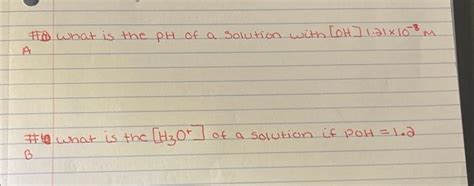 #10 what is the pH of a solution with [OH] 1.21x10⁻⁸ M
A
#10 what is the [H₃O⁺] of a solution if pOH = 1.2
B